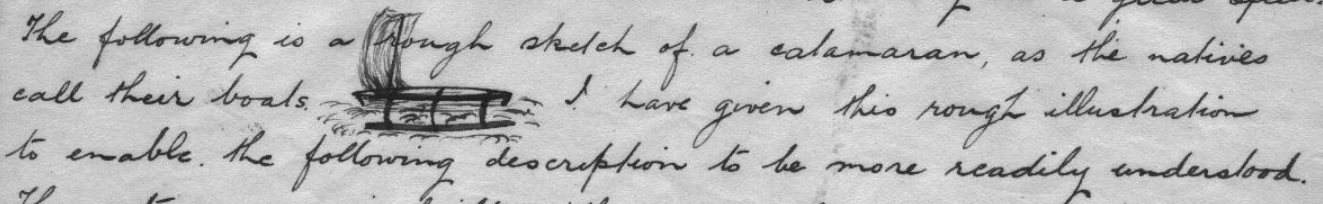 The following is a rough sketch of a catamaran, as the natives
call their boats. I have given this rough illustration
to enable the following description to be more readily understood.